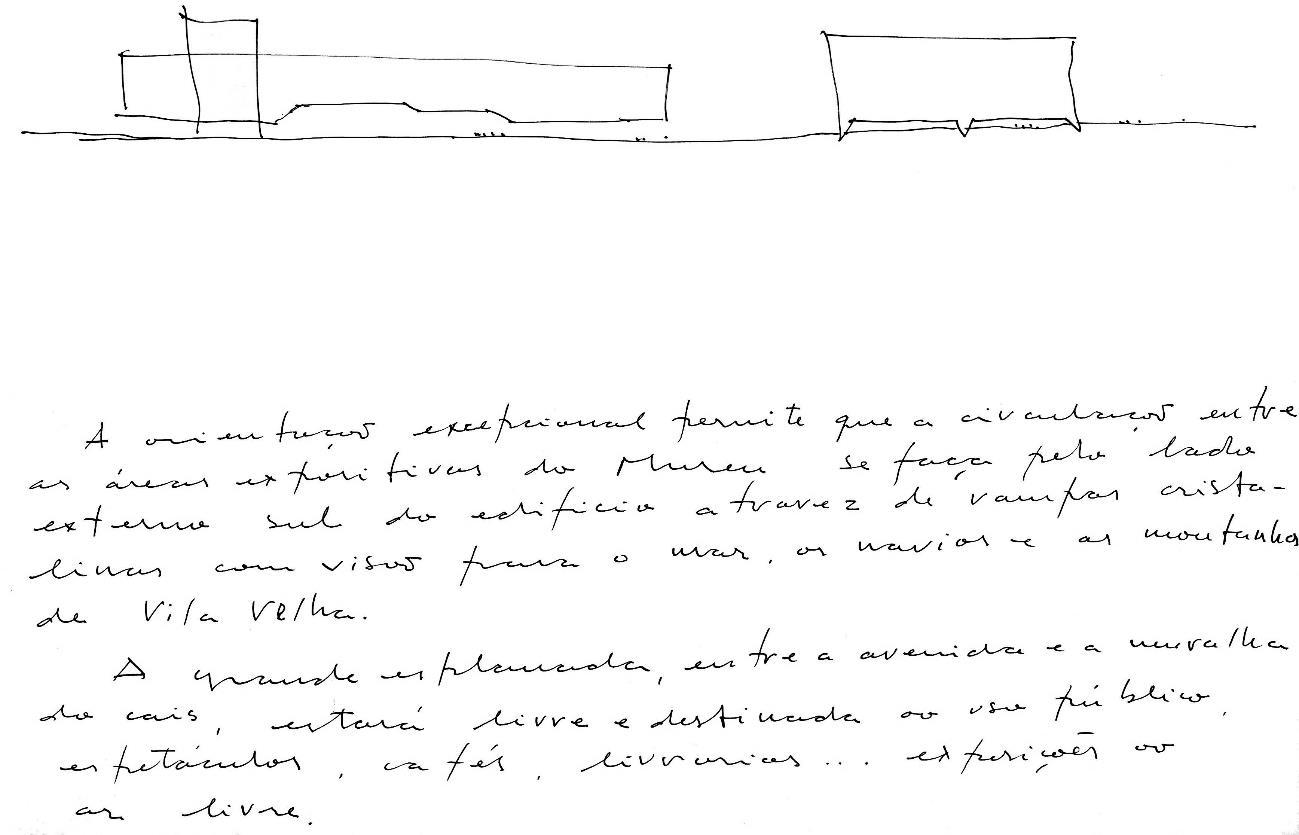 A orientação excepcional permite que a circulação entre
as áreas expositivas do Museu se faça pelo lado
externo sul do edificio atravez de rampas crista-
linas com visão para o mar, os navios e as montanhas
de Vila Velha.
A grande esplanada, entre a avenida e a muralha
do cais, estará livre e destinada ao uso público,
espetáculos, cafés, livrarias... exposições ao
ar livre.